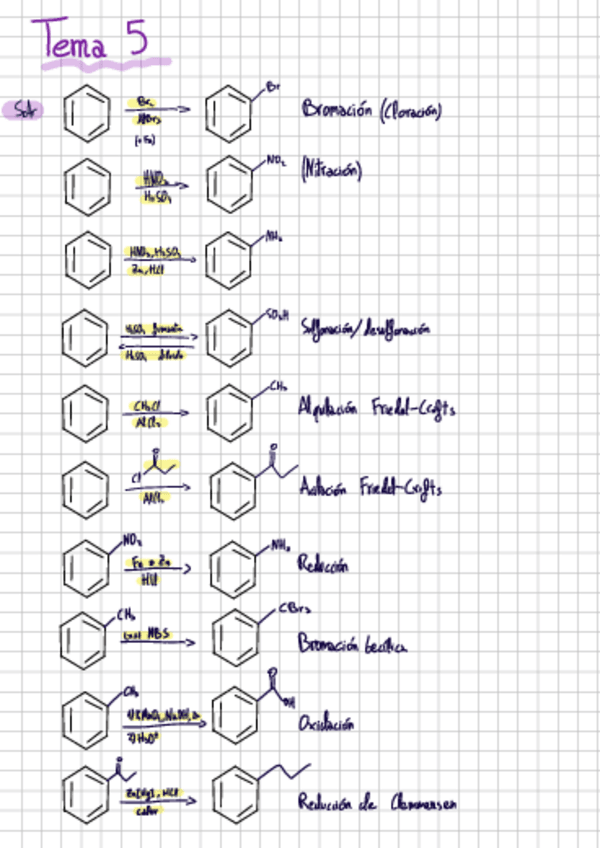 Tema 5
SEAr
Br₂
Br
AlBr₃
(o Fe)
Bromación (Cloración)
HNO₃
NO₂
H₂SO₄
(Nitración)
HNO₃, H₂SO₄
NH₂
Zn, HCl
SO₃H
H₂SO₄ fumante
H₂SO₄ diluido
Sulfonación/desulfonación
CH₃
CH₃Cl
AlCl₃
Alquilación Friedel-Crafts
O
O
Cl
AlCl₃
Acilación Friedel-Crafts
NO₂
NH₂
Fe o Zn
HCl
Reducción
CH₃
CBr₃
NBS
Bromación
CH₃
O
OH
1) KMnO₄, NaOH, Δ
2) H₃O⁺
Oxidación
O
Zn(Hg), HCl
calor
Reducción de Clemmensen